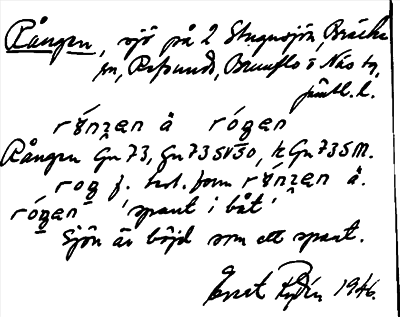 Rången, sjö på 2 Stugusjön, Bräcke
sn, Refsund, Brunflo o Näs tg,
jämtl. l.
rǫnȥen å rógen
Rången Gn 73, Gn 73 SV50, k Gn 73 SM.
rog f. best. form rǫnȥen å.
rógen 'spant i båt'
Sjön är böjd som ett spant.
1946.